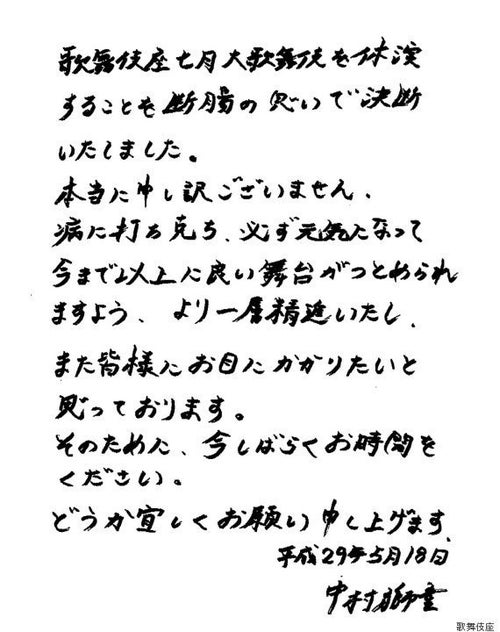 歌舞伎座七月大歌舞伎を休演
することを断腸の思いで決断
いたしました。
本当に申し訳ございません。
病に打ち克ち、必ず元気になって
今まで以上に良い舞台がつとめられ
ますよう、より一層精進いたし、
また皆様にお目にかかりたいと
思っております。
そのために、今しばらくお時間を
ください。
どうか宜しくお願い申し上げます。
平成29年5月18日
中村獅童
歌舞伎座